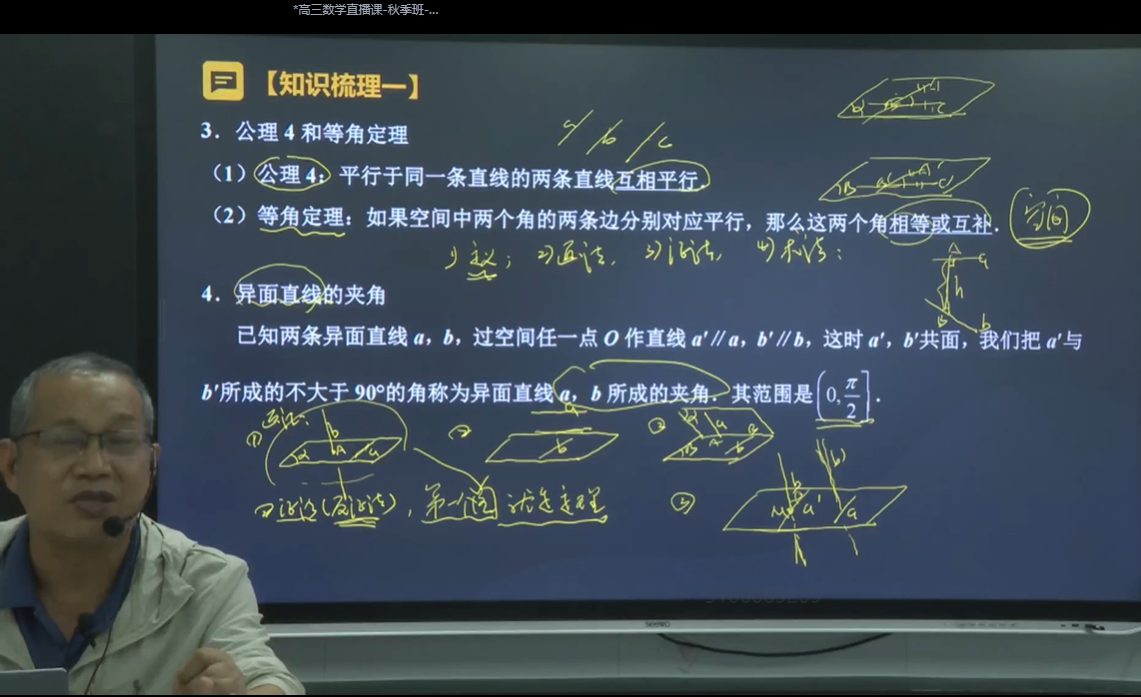 *高三数学直播课-秋季班-...
【知识梳理一】
3．公理 4 和等角定理
a b c
（1）公理 4：平行于同一条直线的两条直线互相平行．
（2）等角定理：如果空间中两个角的两条边分别对应平行，那么这两个角相等或互补．
1) 定义； 2) 画法， 3) 证法， 4) 求法：
4．异面直线的夹角
已知两条异面直线 a，b，过空间任一点 O 作直线 a′∥a，b′∥b，这时 a′，b′共面，我们把 a′与
b′所成的不大于 90°的角称为异面直线 a，b 所成的夹角．其范围是(0,π/2]．
画法:
证法(反证法)，第一个图就是定理